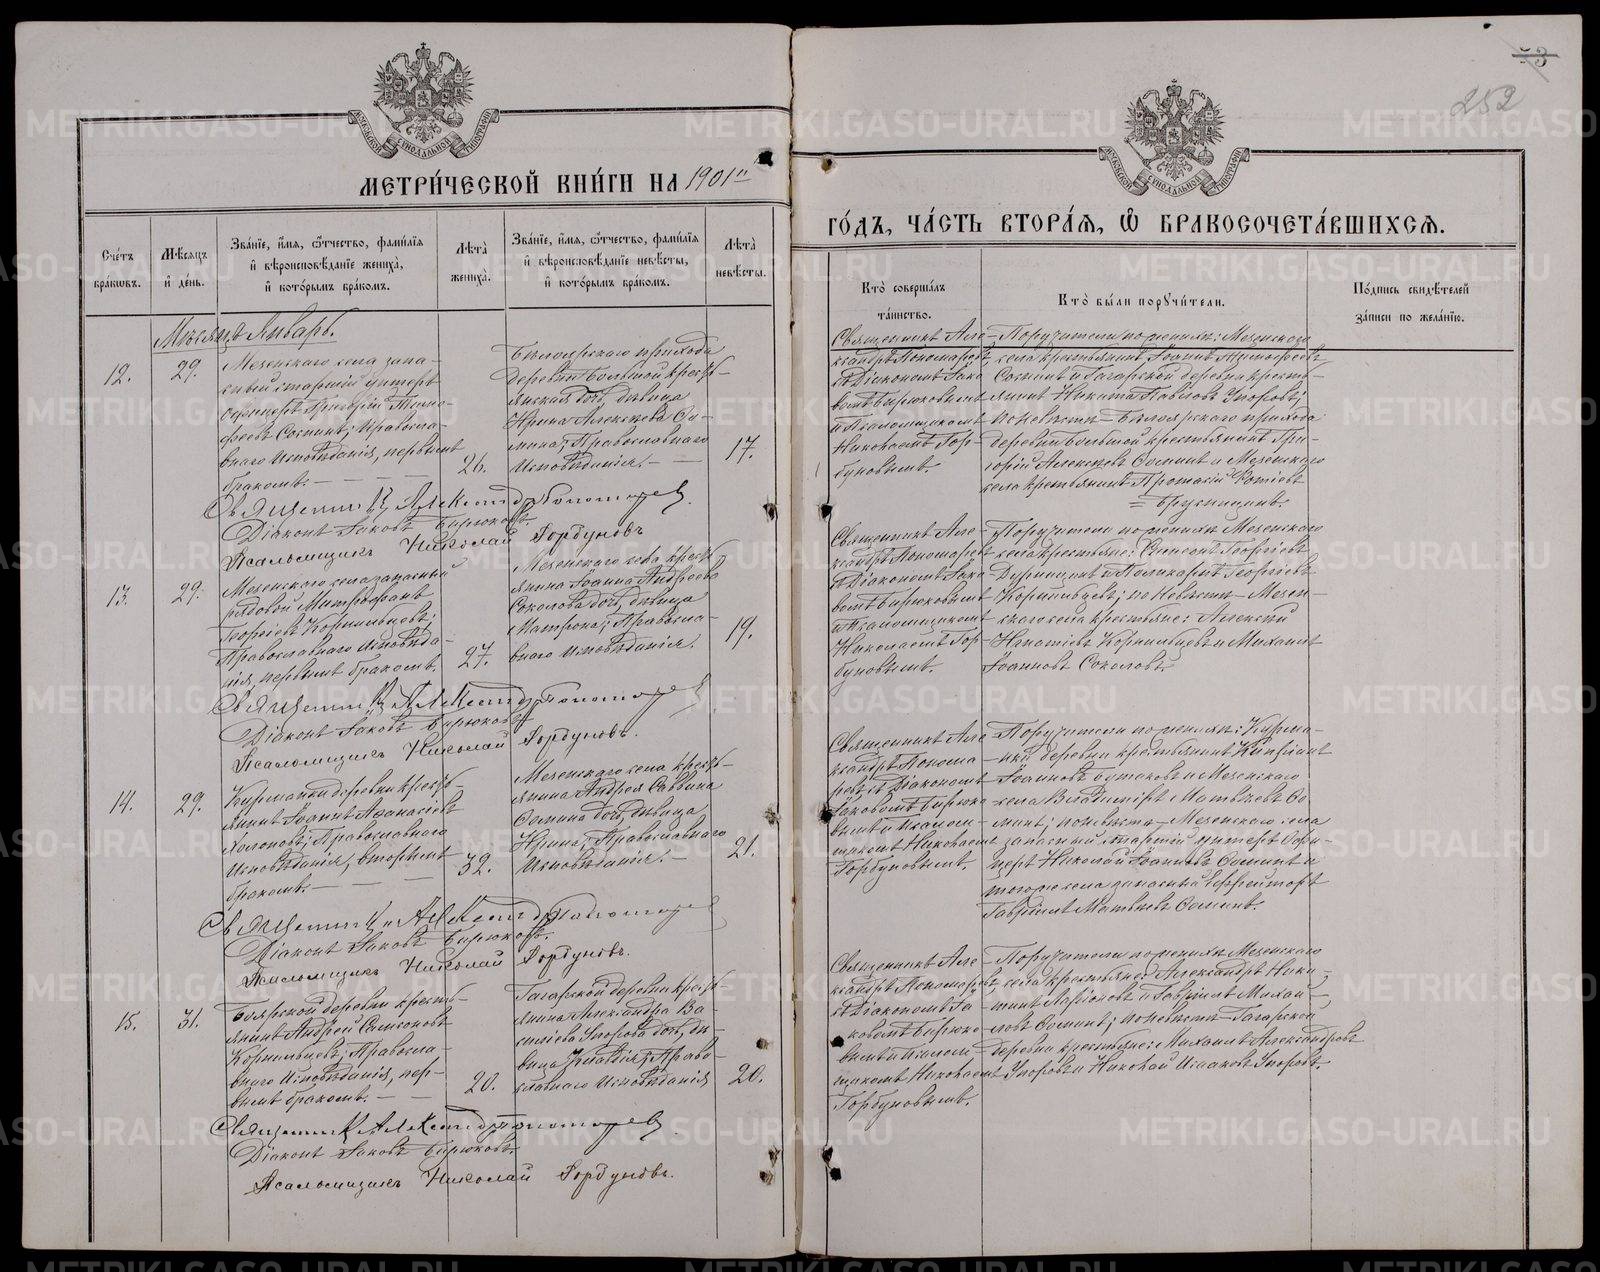 МЕТРИЧЕСКОЙ КНИГИ НА 1901й
ГОДЪ, ЧАСТЬ ВТОРАЯ, Ѡ БРАКОСОЧЕТАВШИХСЯ.
252
МОСКОВСКОЙ СѴНОДАЛЬНОЙ ТИПОГРАФІИ
МОСКОВСКОЙ СѴНОДАЛЬНОЙ ТИПОГРАФІИ
Счетъ браковъ.
Мѣсяцъ и день.
Званіе, имя, отчество, фамилія
и вѣроисповѣданіе жениха,
и которымъ бракомъ.
Лѣта
жениха.
Званіе, имя, отчество, фамилія
и вѣроисповѣданіе невѣсты,
и которымъ бракомъ.
Лѣта
невѣсты.
Кто совершалъ
таинство.
Кто были поручители.
Подпись свидѣтелей
записи по желанію.
Мѣсяцъ Январь.
12.
29.
Мезенскаго села запа-
сный старшій унтеръ
Офицеръ Григорій Тимо-
феевъ Соснинъ; Правосла-
внаго Исповѣданія, первымъ
бракомъ.
26.
Бѣлоярскаго прихода
деревни Большой кресть-
янская дочь, дѣвица
Ирина Алексѣева
Православнаго
Исповѣданія.
17.
Священникъ Але-
ксандръ Пономаревъ
съ Діакономъ Іако-
вомъ Бирюковымъ
и Псаломщикомъ
Николаемъ Гор-
буновымъ.
Поручители по женихѣ: Мезенскаго
села крестьянинъ Іоаннъ
Соснинъ и Гагарской деревни кресть-
янинъ Никита Павловъ Упоровъ;
по невѣстѣ – Бѣлоярскаго прихода
деревни Большой крестьянинъ Гри-
горій Алексѣевъ и Мезенскаго
села крестьянинъ
Священникъ Александръ Пономаревъ.
Діаконъ Іаковъ Бирюковъ.
Псаломщикъ Николай Горбуновъ
13.
29.
Мезенскаго села запасный
рядовой Митрофанъ
Георгіевъ Корнильцевъ;
Православнаго Исповѣда-
нія, первымъ бракомъ.
27.
Мезенскаго села кресть-
янина Іоанна Андреева
Соколова дочь, дѣвица
Матрона; Правосла-
внаго Исповѣданія.
19.
Священникъ Але-
ксандръ Пономаревъ
съ Діакономъ Іако-
вомъ Бирюковымъ
и Псаломщикомъ
Николаемъ Гор-
буновымъ.
Поручители по женихѣ Мезенскаго
села крестьяне: Георгіевъ
и Поликарпъ Георгіевъ
Корнильцевъ; по невѣстѣ – Мезен-
скаго села крестьяне: Алексѣй
Корнильцевъ и Михаилъ
Іоанновъ Соколовъ.
Священникъ Александръ Пономаревъ
Діаконъ Іаковъ Бирюковъ
Псаломщикъ Николай Горбуновъ.
14.
29.
Курманки деревни кресть-
янинъ Іоаннъ Аѳанасіевъ
Холоповъ; Православнаго
Исповѣданія, вторымъ
бракомъ.
32.
Мезенскаго села кресть-
янина Андрея Саввина
Соснина дочь, дѣвица
Ирина; Православнаго
Исповѣданія.
21.
Священникъ Але-
ксандръ Понома-
ревъ съ Діакономъ
Іаковомъ Бирюко-
вымъ и Псалом-
щикомъ Николаемъ
Горбуновымъ.
Поручители по женихѣ: Курма-
нки деревни крестьянинъ
Іоанновъ Бутаковъ и Мезенскаго
села Владиміръ Матвѣевъ Со-
снинъ; по невѣстѣ – Мезенскаго села
запасный старшій унтеръ Офи-
церъ Николай Іоанновъ Соснинъ и
того же села запасный Ефрейторъ
Гавріилъ Матвѣевъ Соснинъ.
Священникъ Александръ Пономаревъ
Діаконъ Іаковъ Бирюковъ.
Псаломщикъ Николай Горбуновъ.
15.
31.
Боярской деревни кресть-
янинъ Андрей Симеоновъ
Корнильцевъ; Правосла-
внаго Исповѣданія, пер-
вымъ бракомъ.
20.
Гагарской деревни кресть-
янина Александра Ва-
сильева Упорова дочь, дѣ-
вица Клавдія; Право-
славнаго Исповѣданія
20.
Священникъ Але-
ксандръ Пономаревъ
съ Діакономъ Іа-
ковомъ Бирюко-
вымъ и Псалом-
щикомъ Николаемъ
Горбуновымъ.
Поручители по женихѣ Мезенскаго
села крестьяне: Александръ Ники-
тинъ Ларіоновъ и Гавріилъ Михай-
ловъ Соснинъ; по невѣстѣ – Гагарской
деревни крестьяне: Михаилъ Александровъ
Упоровъ и Николай Исааковъ Упоровъ.
Священникъ Александръ Пономаревъ
Діаконъ Іаковъ Бирюковъ.
Псаломщикъ Николай Горбуновъ.
METRIKI.GASO-URAL.RU